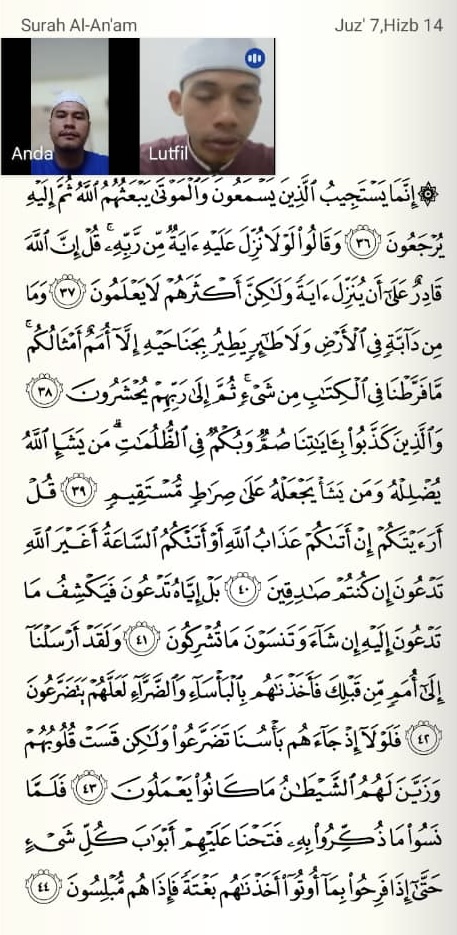 Surah Al-An'am
Juz' 7,Hizb 14
Anda
Lutfil
۞ إِنَّمَا يَسْتَجِيبُ الَّذِينَ يَسْمَعُونَ وَالْمَوْتَىٰ يَبْعَثُهُمُ اللَّهُ ثُمَّ إِلَيْهِ
يُرْجَعُونَ ٣٦ وَقَالُوا لَوْلَا نُزِّلَ عَلَيْهِ ءَايَةٌ مِّن رَّبِّهِۦ ۚ قُلْ إِنَّ اللَّهَ
قَادِرٌ عَلَىٰٓ أَن يُنَزِّلَ ءَايَةً وَلَٰكِنَّ أَكْثَرَهُمْ لَا يَعْلَمُونَ ٣٧ وَمَا
مِن دَآبَّةٍ فِي الْأَرْضِ وَلَا طَٰٓئِرٍ يَطِيرُ بِجَنَاحَيْهِ إِلَّآ أُمَمٌ أَمْثَالُكُم ۚ
مَّا فَرَّطْنَا فِي الْكِتَٰبِ مِن شَيْءٍ ۚ ثُمَّ إِلَىٰ رَبِّهِمْ يُحْشَرُونَ ٣٨
وَالَّذِينَ كَذَّبُوا بِـَٔايَٰتِنَا صُمٌّ وَبُكْمٌ فِي الظُّلُمَٰتِ ۗ مَن يَشَإِ اللَّهُ
يُضْلِلْهُ وَمَن يَشَأْ يَجْعَلْهُ عَلَىٰ صِرَٰطٍ مُّسْتَقِيمٍ ٣٩ قُلْ
أَرَءَيْتَكُمْ إِنْ أَتَىٰكُمْ عَذَابُ اللَّهِ أَوْ أَتَتْكُمُ السَّاعَةُ أَغَيْرَ اللَّهِ
تَدْعُونَ إِن كُنتُمْ صَٰدِقِينَ ٤٠ بَلْ إِيَّاهُ تَدْعُونَ فَيَكْشِفُ مَا
تَدْعُونَ إِلَيْهِ إِن شَآءَ وَتَنسَوْنَ مَا تُشْرِكُونَ ٤١ وَلَقَدْ أَرْسَلْنَآ
إِلَىٰٓ أُمَمٍ مِّن قَبْلِكَ فَأَخَذْنَٰهُم بِالْبَأْسَآءِ وَالضَّرَّآءِ لَعَلَّهُمْ يَتَضَرَّعُونَ
٤٢ فَلَوْلَآ إِذْ جَآءَهُم بَأْسُنَا تَضَرَّعُوا وَلَٰكِن قَسَتْ قُلُوبُهُمْ
وَزَيَّنَ لَهُمُ الشَّيْطَٰنُ مَا كَانُوا يَعْمَلُونَ ٤٣ فَلَمَّا
نَسُوا مَا ذُكِّرُوا بِهِۦ فَتَحْنَا عَلَيْهِمْ أَبْوَٰبَ كُلِّ شَيْءٍ
حَتَّىٰٓ إِذَا فَرِحُوا بِمَآ أُوتُوٓا أَخَذْنَٰهُم بَغْتَةً فَإِذَا هُم مُّبْلِسُونَ ٤٤